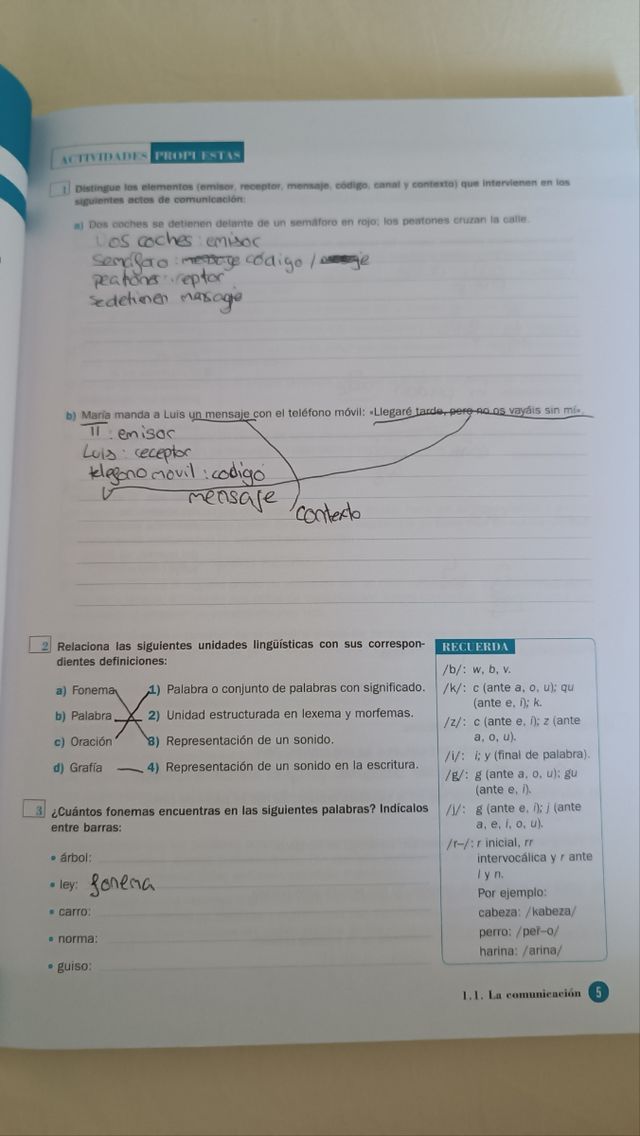 ACTIVIDADES PROPUESTAS
1 Distingue los elementos (emisor, receptor, mensaje, código, canal y contexto) que intervienen en los
siguientes actos de comunicación:
a) Dos coches se detienen delante de un semáforo en rojo; los peatones cruzan la calle.
Los coches: emisor
Semáforo: código /
peatones: reptor
se detienen masage
b) María manda a Luis un mensaje con el teléfono móvil: «Llegaré tarde, pero no os vayáis sin mí».
: emisor
Luis: receptor
telefono movil: codigo
mensaje
contexto
2 Relaciona las siguientes unidades lingüísticas con sus correspon-
dientes definiciones:
a) Fonema 1) Palabra o conjunto de palabras con significado.
b) Palabra 2) Unidad estructurada en lexema y morfemas.
c) Oración 3) Representación de un sonido.
d) Grafía 4) Representación de un sonido en la escritura.
3 ¿Cuántos fonemas encuentras en las siguientes palabras? Indícalos
entre barras:
• árbol:
• ley: fonema
• carro:
• norma:
• guiso:
RECUERDA
/b/: w, b, v.
/k/: c (ante a, o, u); qu
(ante e, i); k.
/z/: c (ante e, i); z (ante
a, o, u).
/i/: i; y (final de palabra).
/g/: g (ante a, o, u); gu
(ante e, i).
/j/: g (ante e, i); j (ante
a, e, i, o, u).
/r–/: r inicial, rr
intervocálica y r ante
l y n.
Por ejemplo:
cabeza: /kabeza/
perro: /per̄–o/
harina: /arina/
1.1. La comunicación 5